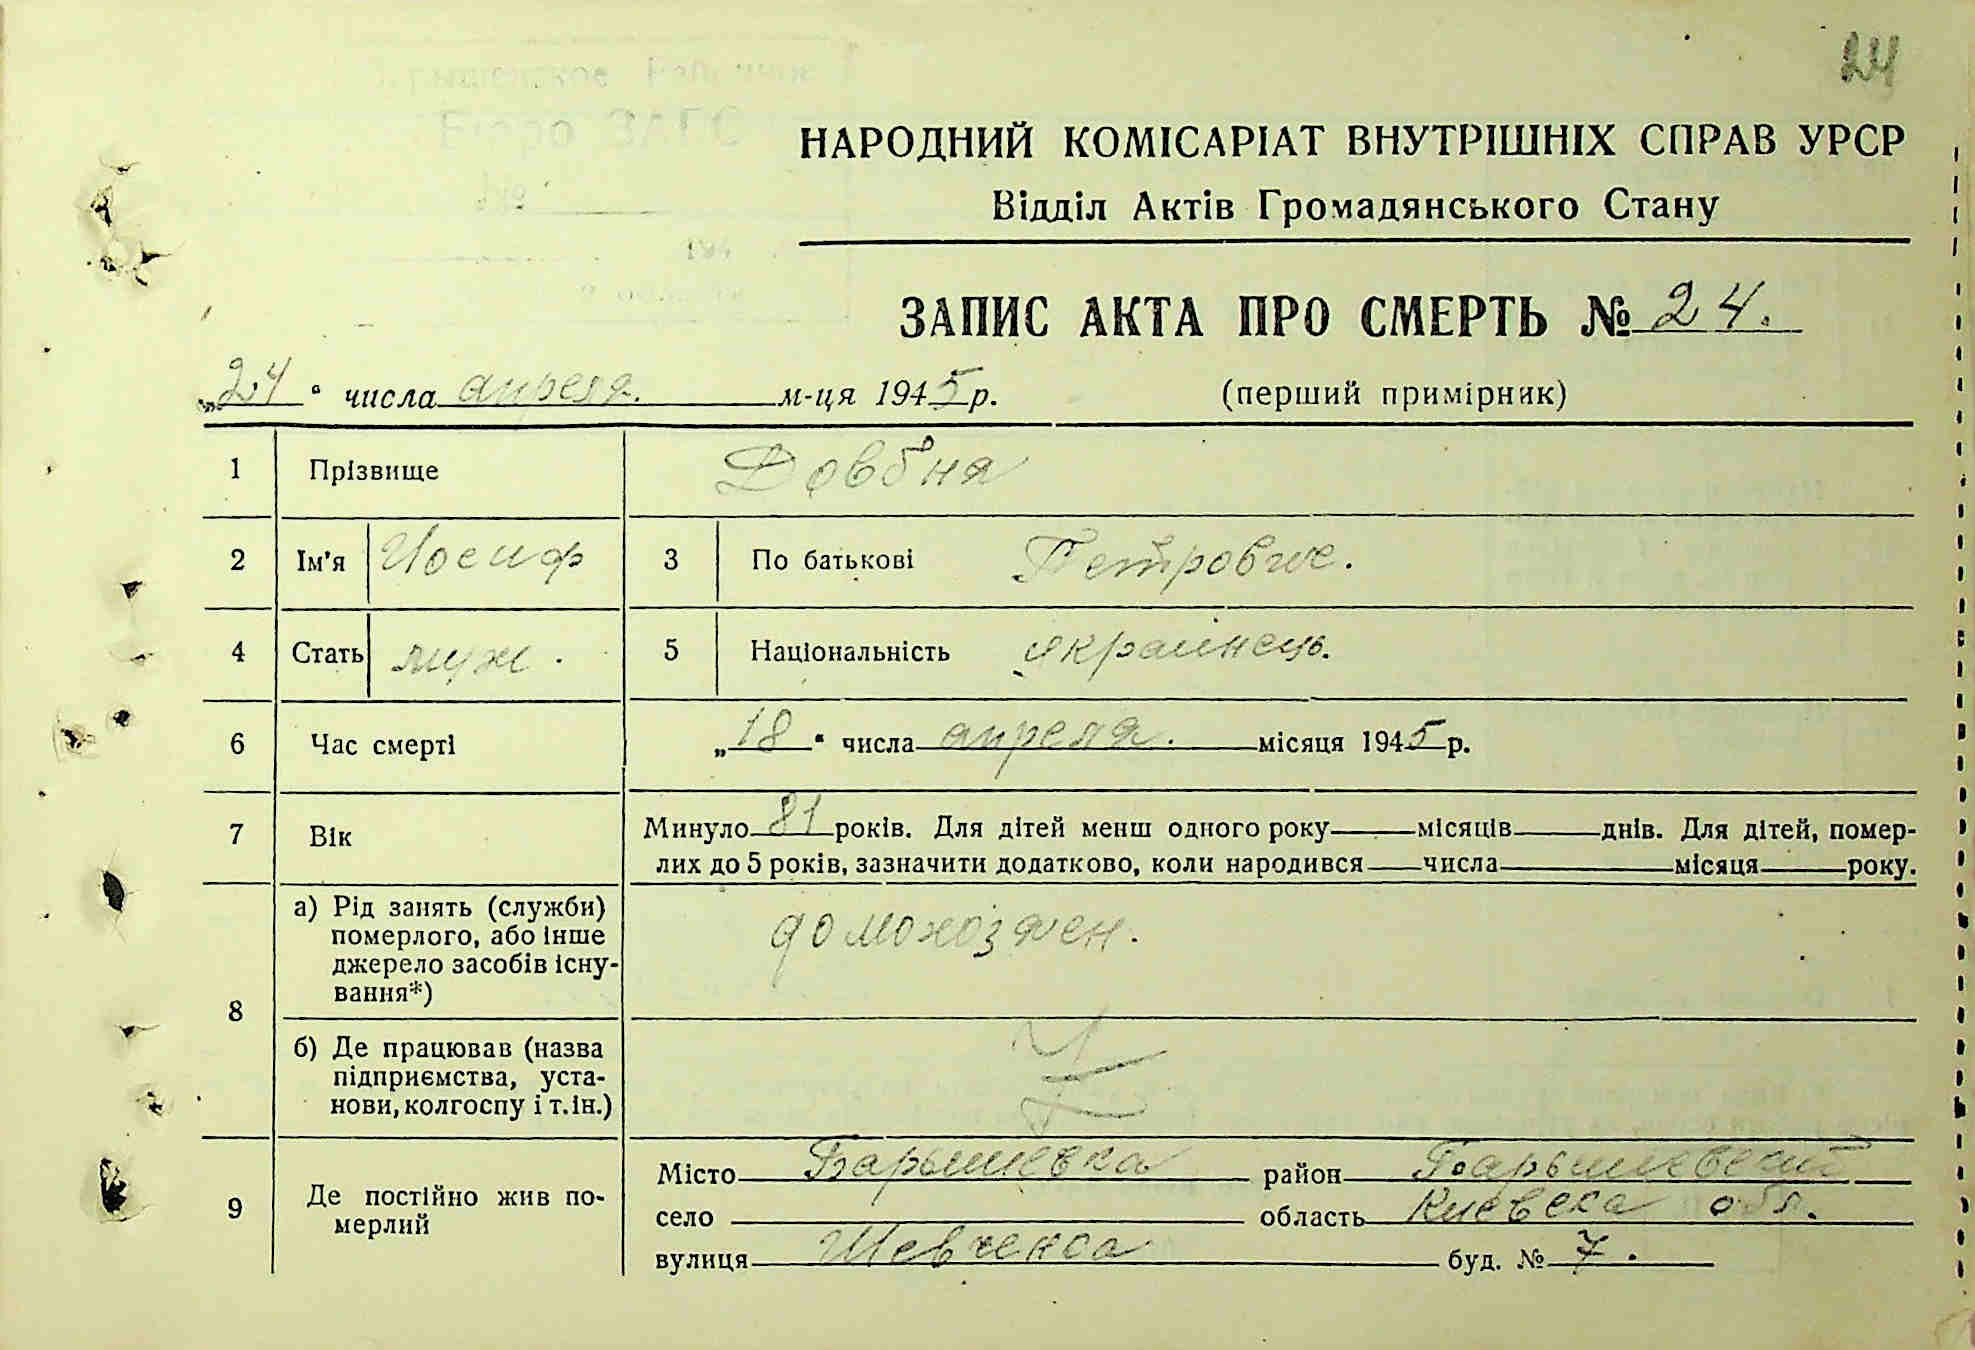 24
НАРОДНИЙ КОМІСАРІАТ ВНУТРІШНІХ СПРАВ УРСР
Відділ Актів Громадянського Стану
ЗАПИС АКТА ПРО СМЕРТЬ № 24.
„24“ числа апреля. м-ця 1945 р. (перший примірник)
1 Прізвище Довбня
2 Ім'я Иосиф 3 По батькові Петровис.
4 Стать муж. 5 Національність украинець.
6 Час смерті „18“ числа апреля. місяця 1945 р.
7 Вік Минуло 81 років. Для дітей менш одного року місяців днів. Для дітей, помер-
лих до 5 років, зазначити додатково, коли народився числа місяця року.
8 а) Рід занять (служби) домохозяен.
померлого, або інше
джерело засобів існу-
вання*)
б) Де працював (назва
підприємства, уста-
нови, колгоспу і т.ін.)
9 Де постійно жив по-
мерлий
Місто Барышевка район Барышевский
село область Киевска обл.
вулиця Шевченка буд. № 7.
Бюро ЗАГС